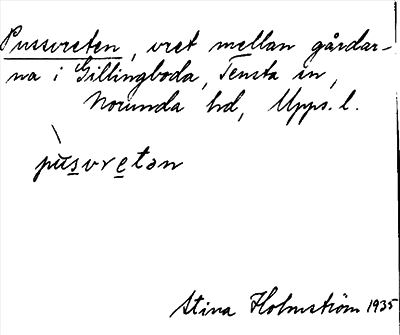 Pussvreten, vret mellan gårdar-
na i Gillingboda, Tensta sn,
Norunda hd, Upps. l.
pùsvretən
Stina Holmström 1935